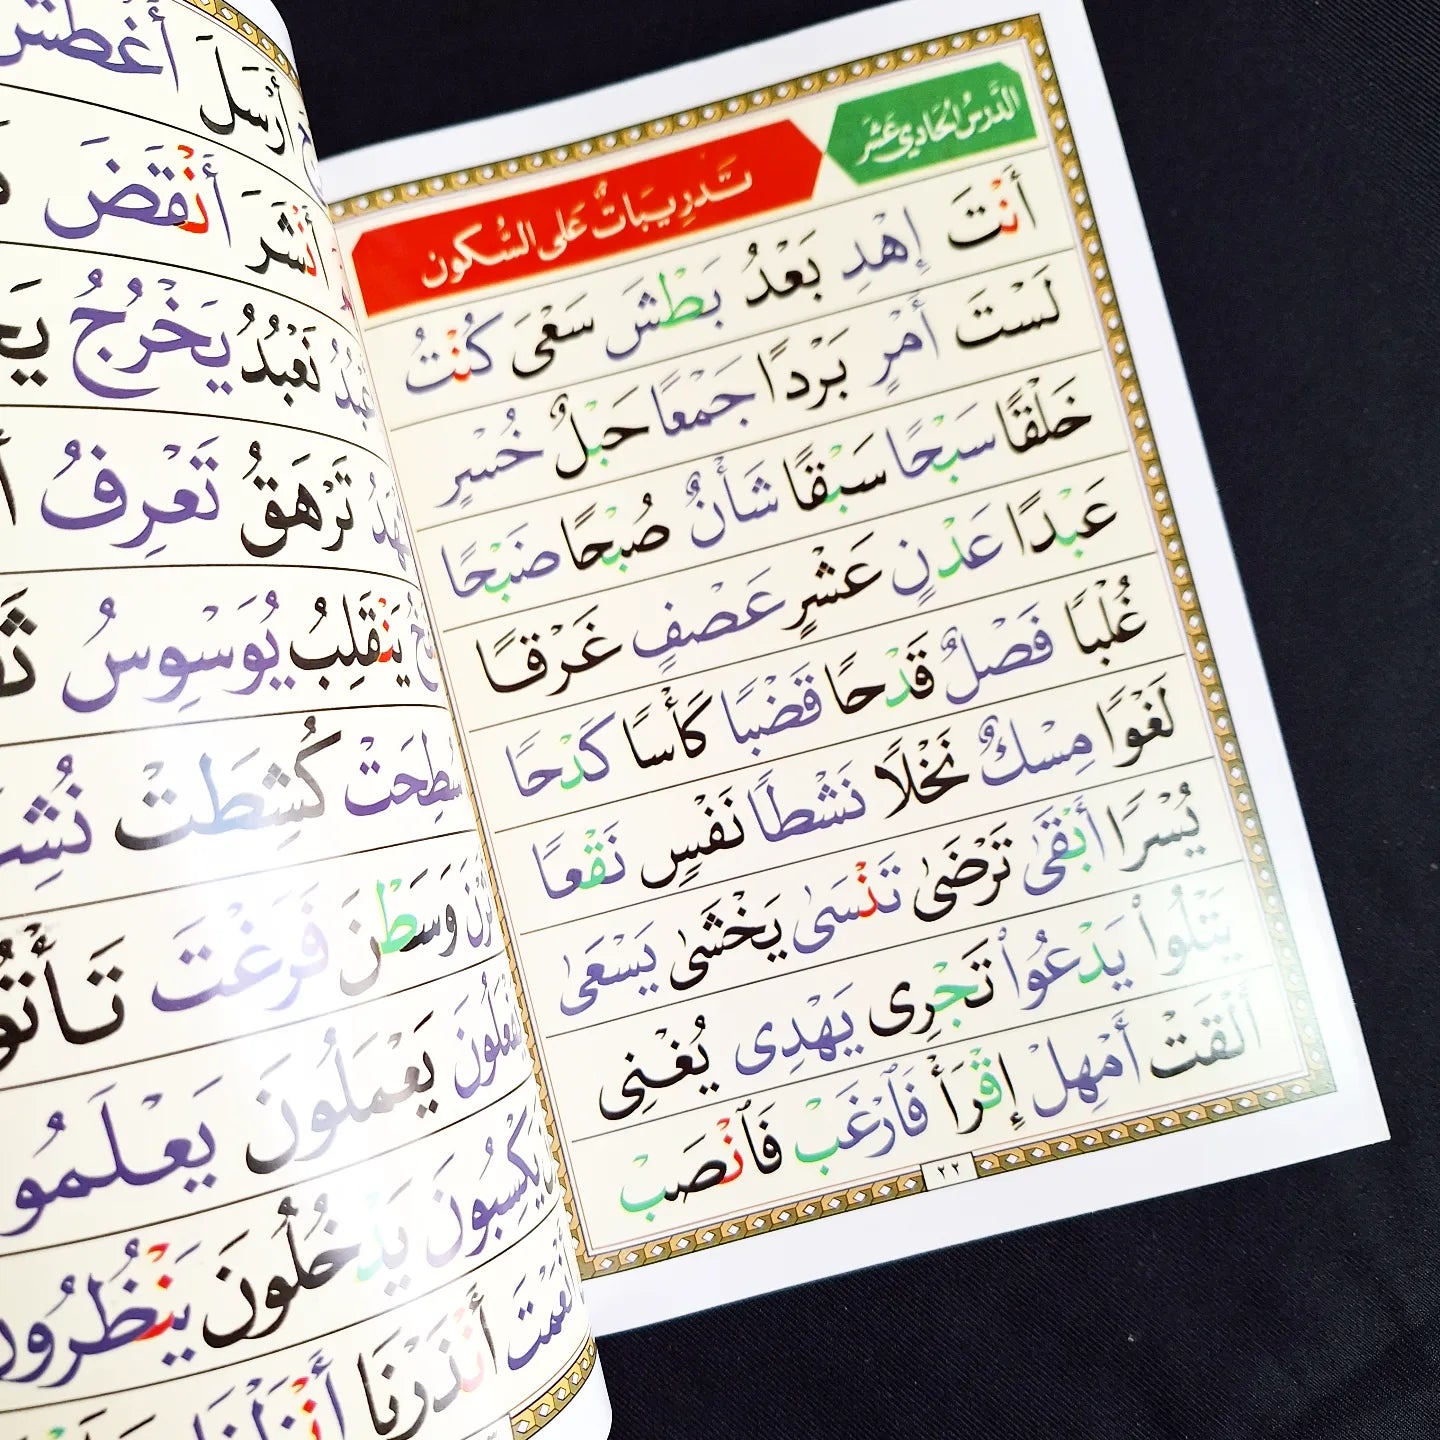 الدَّرْسُ الحَادِي عَشَرَ
تَدْرِيبَاتٌ عَلَى السُّكُون
أَنْتَ إِهْدِ بَعْدُ بَطْشَ سَعْىَ كُنْتُ
لَسْتَ أَمْرٍ بَرْدًا جَمْعًا حَبْلٌ خُسْرٍ
خَلْقًا سَبْحًا سَبْقًا شَأْنٌ صُبْحًا ضَبْحًا
عَبْدًا عَدْنٍ عَشْرٍ عَصْفٍ غَرْقًا
غُلْبًا فَصْلٌ قَدْحًا قَضْبًا كَأْسًا كَدْحًا
لَغْوًا مِسْكٌ نَخْلًا نَشْطًا نَفْسٍ نَقْعًا
يُسْرًا أَبْقَىٰ تَرْضَىٰ تَنْسَىٰ يَخْشَىٰ يَسْعَىٰ
يَتْلُواْ يَدْعُواْ تَجْرِى يَهْدِى يُغْنِى
أَلْقَتْ أَمْهِلْ إِقْرَأْ فَٱرْغَبْ فَٱنْصَبْ
٢٢
أَرْسَلَ
أَنْشَرَ أَنْقَضَ
نَعْبُدُ يَخْرُجُ
تَرْهَقُ تَعْرِفُ
يَنْقَلِبُ يُوَسْوِسُ
سُطِحَتْ كُشِطَتْ
وَسَطْنَ فَرَغْتَ
يَعْمَلُونَ
يَكْسِبُونَ يَدْخُلُونَ يَنْظُرُونَ
أَنْعَمْتَ أَنْذَرْنَا